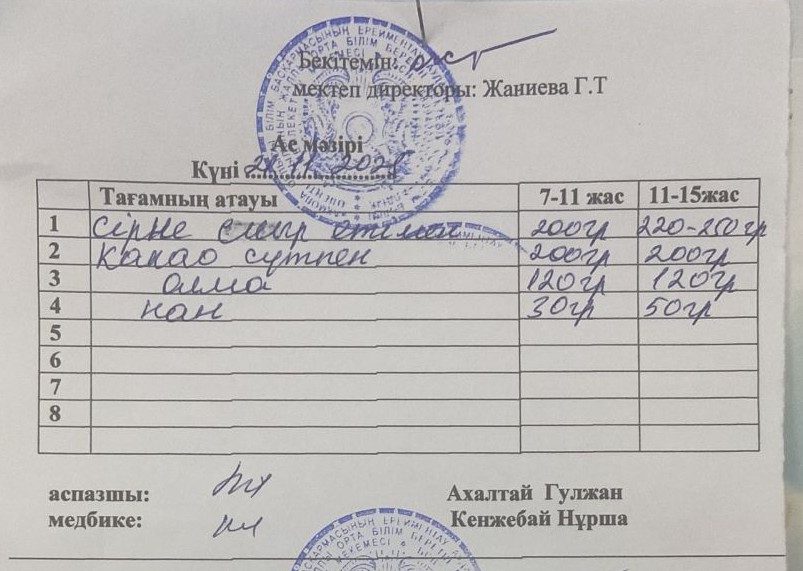 Бекітемін:
мектеп директоры: Жаниева Г.Т
Ас мәзірі
Күні 21.11.2025
Тағамның атауы 7-11 жас 11-15жас
1 Сірне сиыр етімен 200гр 220-250гр
2 Какао сүтпен 200гр 200гр
3 алма 120гр 120гр
4 нан 30гр 50гр
5
6
7
8
аспазшы: Ахалтай Гулжан
медбике: Кенжебай Нұрша